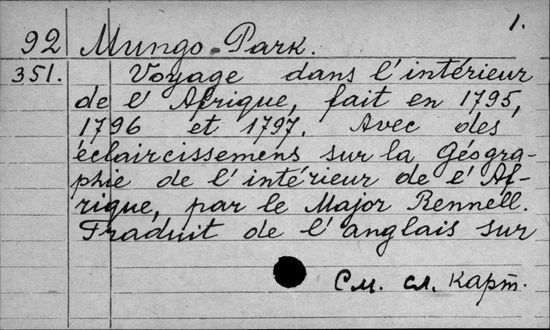 1.
92 Mungo-Park.
351. Voyage dans l'intérieur
de l'Afrique, fait en 1795,
1796 et 1797. Avec des
éclaircissemens sur la Géogra-
phie de l'intérieur de l'Af-
rique, par le Major Rennell.
Traduit de l'anglais sur
См. сл. карт.